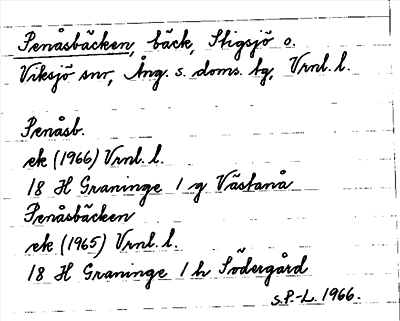 Penåsbäcken, bäck, Stigsjö o.
Viksjö snr, Ång. s. doms. tg, Vrnl. l.
Penåsb.
ek (1966) Vrnl. l.
18 H Graninge 1 g Västanå
Penåsbäcken
ek (1965) Vrnl. l.
18 H Graninge 1 h Södergård
S.P.-L. 1966.